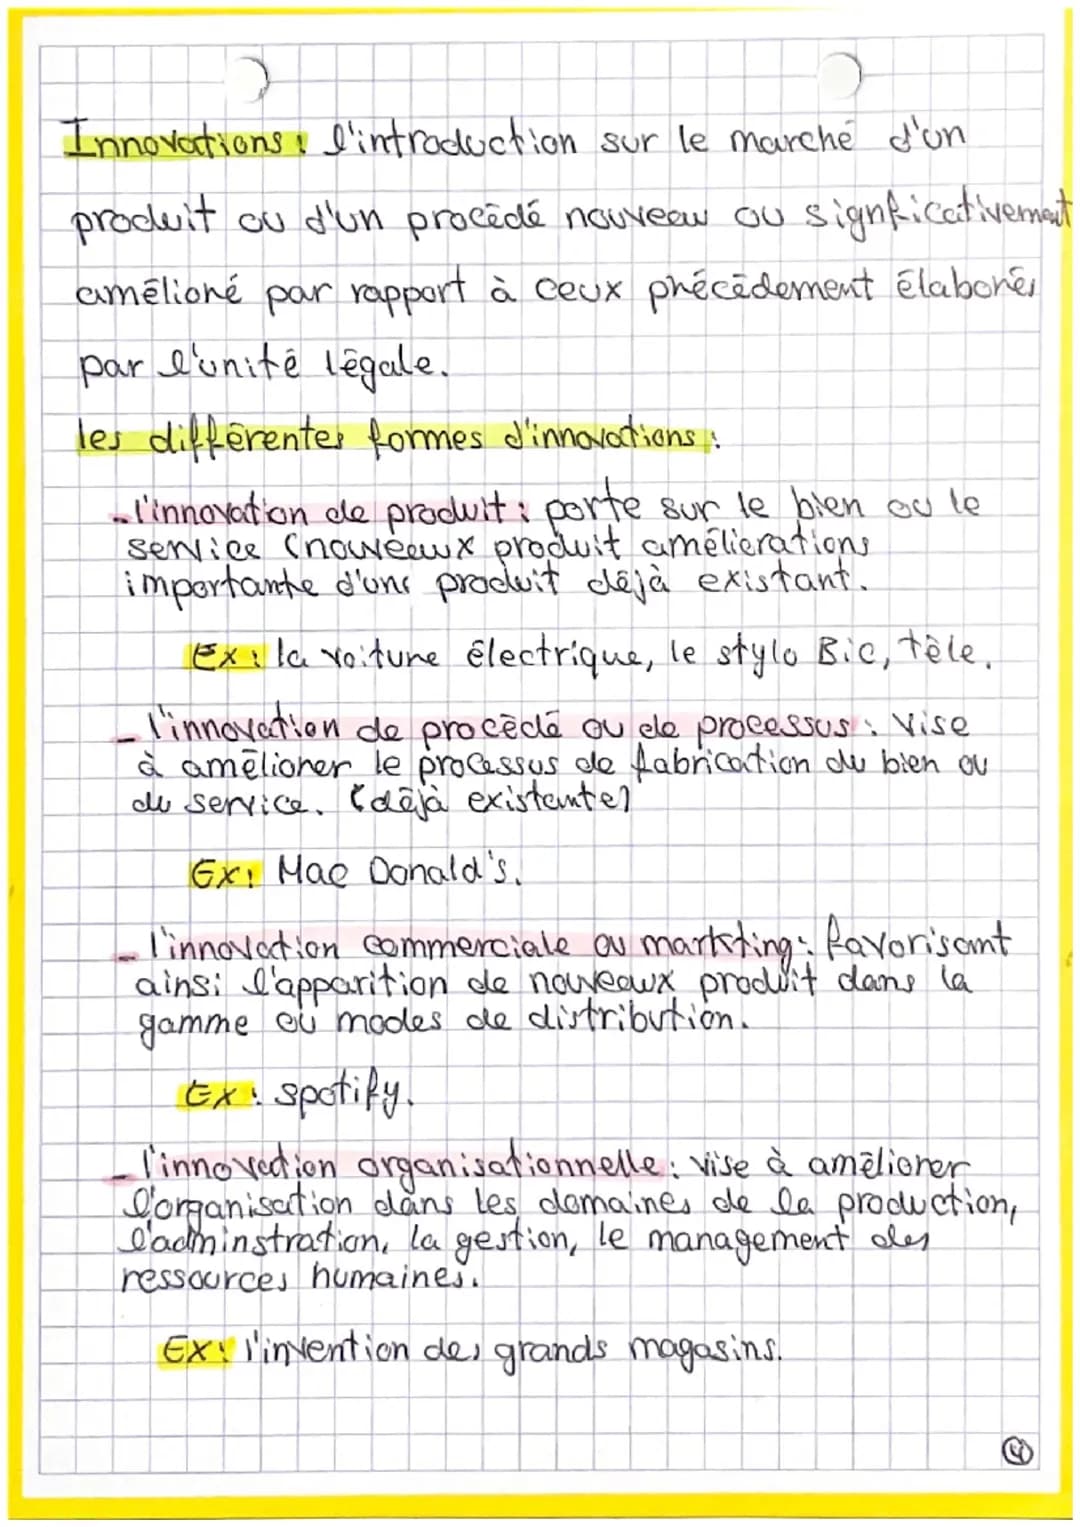 Innovations : l'introduction sur le marché d'un
produit ou d'un procédé nouveau ou signficativement
amélioré par rapport à ceux précédement élaborés
par l'unité légale.
les différentes formes d'innovations :
- l'innovation de produit : porte sur le bien ou le
service (nouveeux produit améliorations
importante d'uns produit déjà existant.
Ex : la voiture électrique, le stylo Bic, téle.
- l'innovation de procédé ou de processus : Vise
à améliorer le processus de fabrication du bien ou
du service. (déjà existante)
Ex : Mac Donald's.
- l'innovation commerciale ou markting : favorisant
ainsi l'apparition de nouveaux produit dans la
gamme ou modes de distribution.
Ex : spotify.
- l'innovation organisationnelle : vise à améliorer
l'organisation dans les domaines de la production,
l'adminstration, la gestion, le management des
ressources humaines.
Ex : l'invention des grands magasins.
4